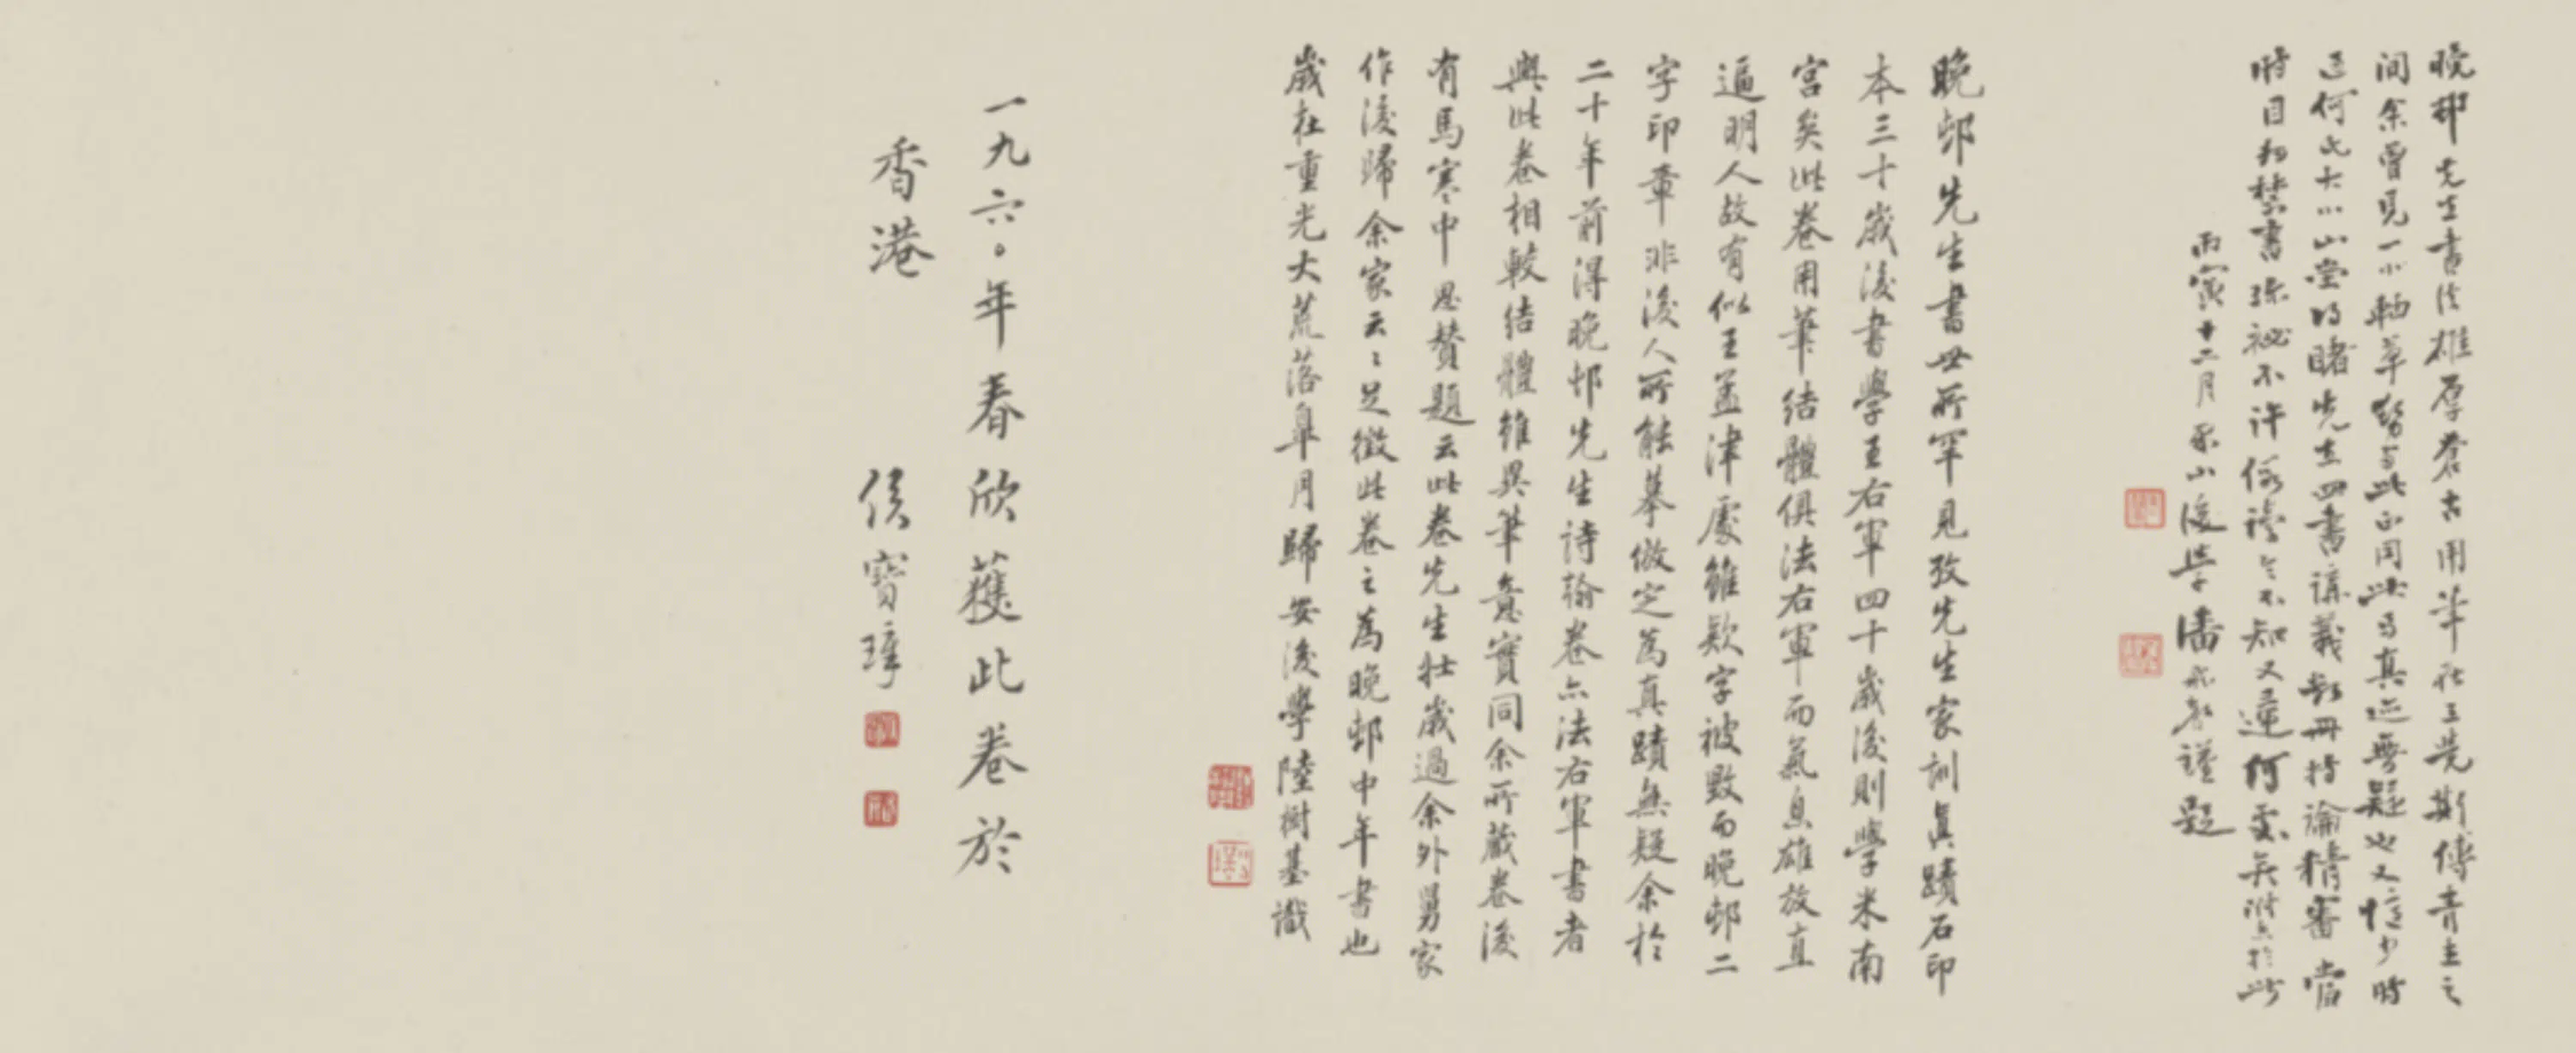 晚邨先生書法雄厚蒼古用筆在王覺斯傅青主之
間余曾見一小軸草勢與此正同此為真迹無疑也又憶少時
過何氏大小山堂時睹先生四書講義鈔冊持論精審當
時目為禁書珍祕不許假讀今不知又運何處矣附此於此
丙寅十二月 山後學潘 謹題
晚邨先生書世所罕見攷先生家訓真蹟石印
本三十歲後書學王右軍四十歲後則學米南
宮矣此卷用筆結體俱法右軍而氣息雄放直
逼明人故有似王孟津處雖款字被毀而晚邨二
字印章非後人所能摹倣定為真蹟無疑余於
二十年前得晚邨先生詩翰卷亦法右軍書者
與此卷相較結體雖異筆意實同余所藏卷後
有馬寒中思贊題云此卷先生壯歲過余外舅家
作後歸余家云云足徵此卷之為晚邨中年書也
歲在重光大荒落皋月歸安後學陸樹基識
一九六〇年春欣獲此卷於
香港 侯寶璋